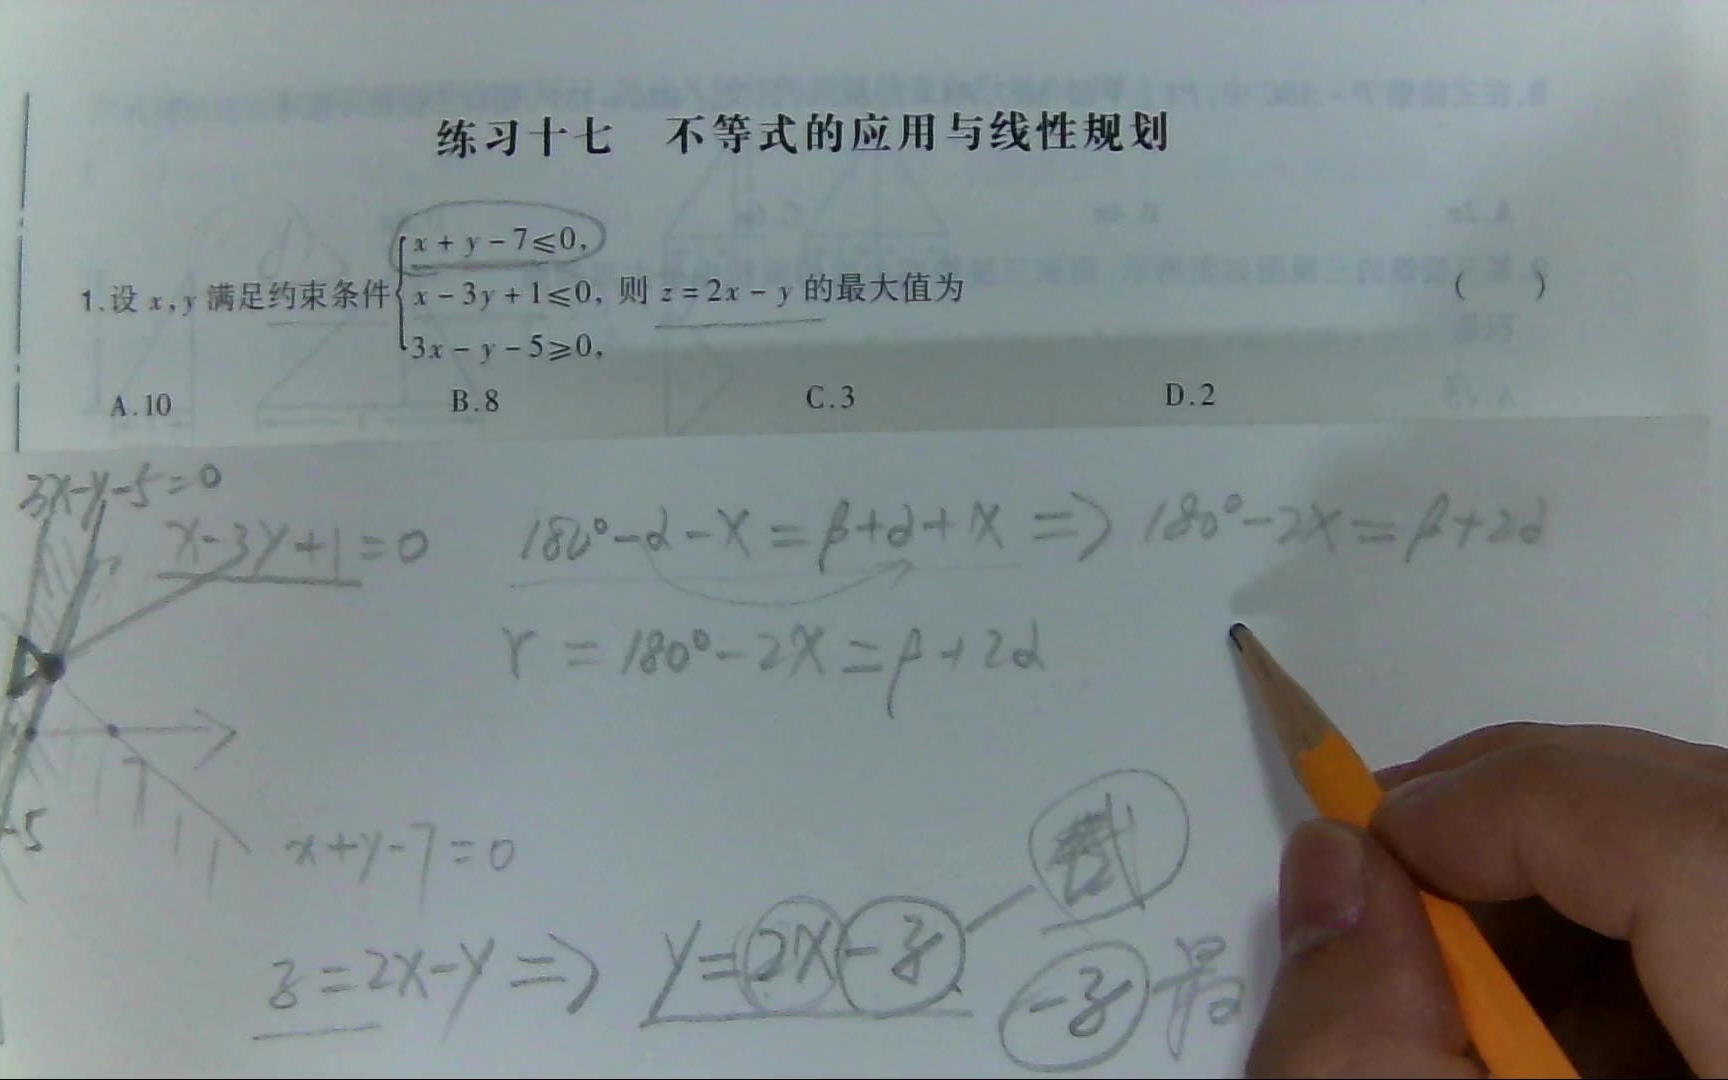 练习十七 不等式的应用与线性规划
x + y - 7 ≤ 0,
1.设 x,y 满足约束条件 x - 3y + 1 ≤ 0, 则 z = 2x - y 的最大值为 ( )
3x - y - 5 ≥ 0,
A.10 B.8 C.3 D.2
3x-y-5=0
x-3y+1=0
180°-α-x=β+α+x => 180°-2x=β+2α
r = 180°-2x=β+2α
7
-5
x+y-7=0
z=2x-y => y=2x-z
-z 最